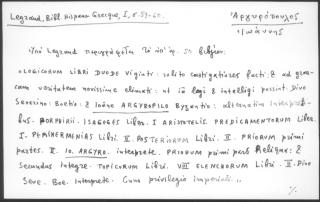 Legrand, Bibl. Hispano Grecque, I, σ. 59-60.
Ἀργυρόπουλος
Ἰωάννης
Legrand περιγράφεται τὸ ὑπ' ἀρ. 50 βιβλίον:
«LOGICORUM LIBRI DUODEViginti: solito castigatiores facti: & ad grae-
cam veritatem novissime elimati: ut iā legi & intelligi possint. Divo
Severino: Boetio: & Ioāne ARGYROPILO Byzantio: alternatim interpreti-
bus. PORPHIRII. ISAGOGES Liber. I ARISTOTELIS PREDICAMENTORUM Liber.
I. PERIHERMENIAS Libri. II. POSTERIORUM Libri. II. PRIORUM primi
partes. II. IO. ARGYRO. interprete. PRIORUM primi pars Reliqua: &
secundus integre. TOPICORUM Libri. VIII ELENCHORUM Libri. II. Divo
Seve. Boe. Interprete. Cum privilegio imperiali.»